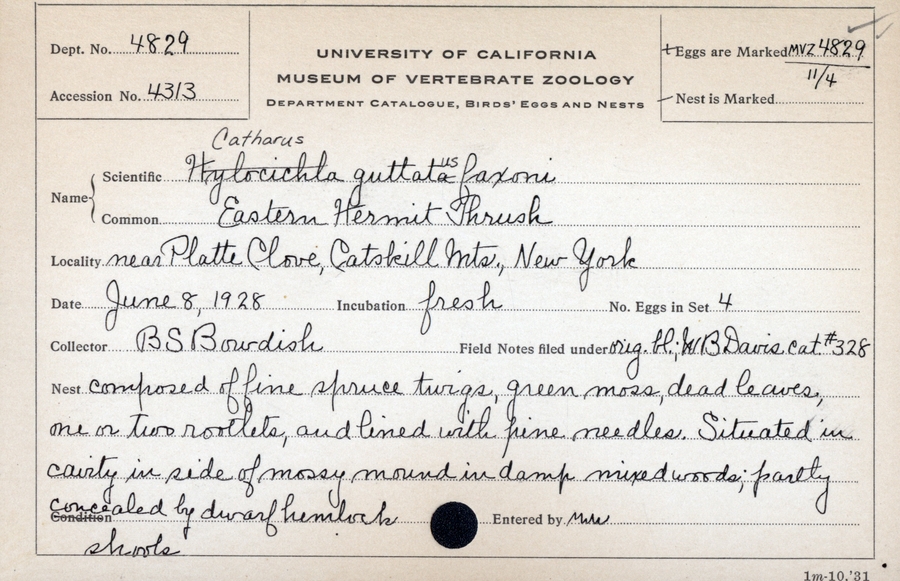 Dept. No. 4829
Accession No. 4313
UNIVERSITY OF CALIFORNIA
MUSEUM OF VERTEBRATE ZOOLOGY
DEPARTMENT CATALOGUE, BIRDS' EGGS AND NESTS
Eggs are Marked MVZ 4829
11/4
Nest is Marked
Catharus
Name Scientific Hylocichla guttata us faxoni
Common Eastern Hermit Thrush
Locality near Platte Clove, Catskill Mts., New York
Date June 8, 1928 Incubation fresh No. Eggs in Set 4
Collector B S Bowdish Field Notes filed under orig. bl; W B Davis cat. #328
Nest composed of fine spruce twigs, green moss, dead leaves,
one or two rootlets, and lined with pine needles. Situated in
cavity in side of mossy mound in damp mixed woods; partly
Condition concealed by dwarf hemlock Entered by
shoots
1m-10,'31